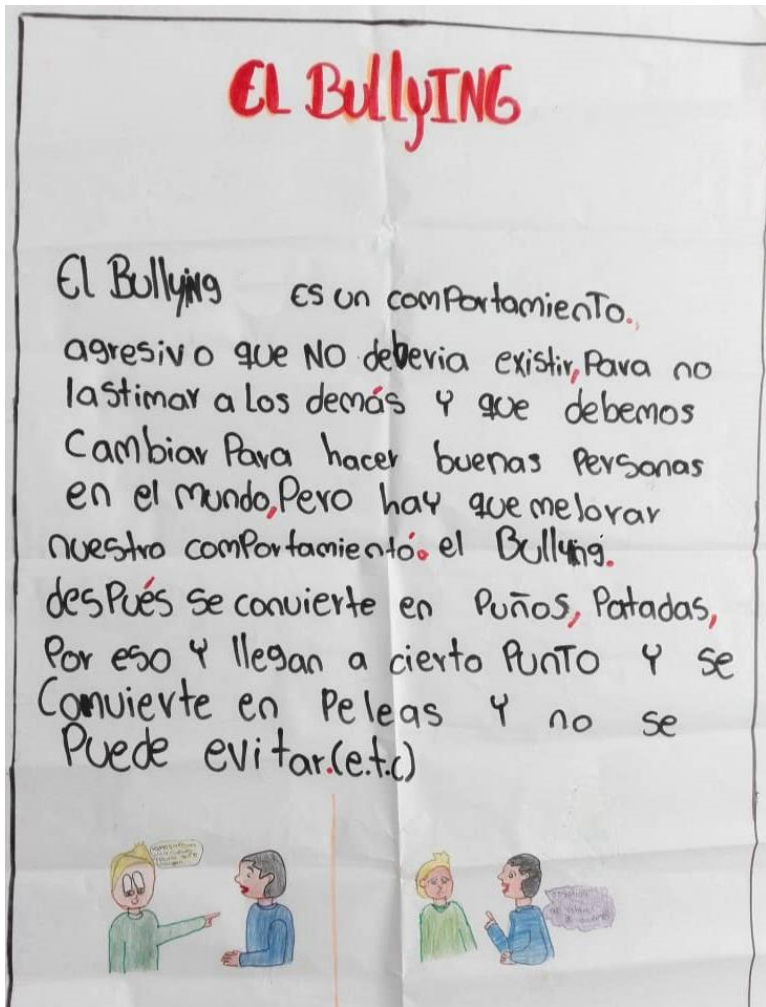 EL BullyING
El Bullying es un comPortamienTo.
agresivo que NO deberia existir, Para no
lastimar a Los demás Y que debemos
Cambiar Para hacer buenas Personas
en el mundo, Pero hay que melorar
nuestro comPortamientó. el Bullyng.
desPués se convierte en Puños, Patadas,
Por eso Y llegan a cierto PUNTO Y se
Convierte en Peleas Y no se
Puede evitar. (e.t.c)